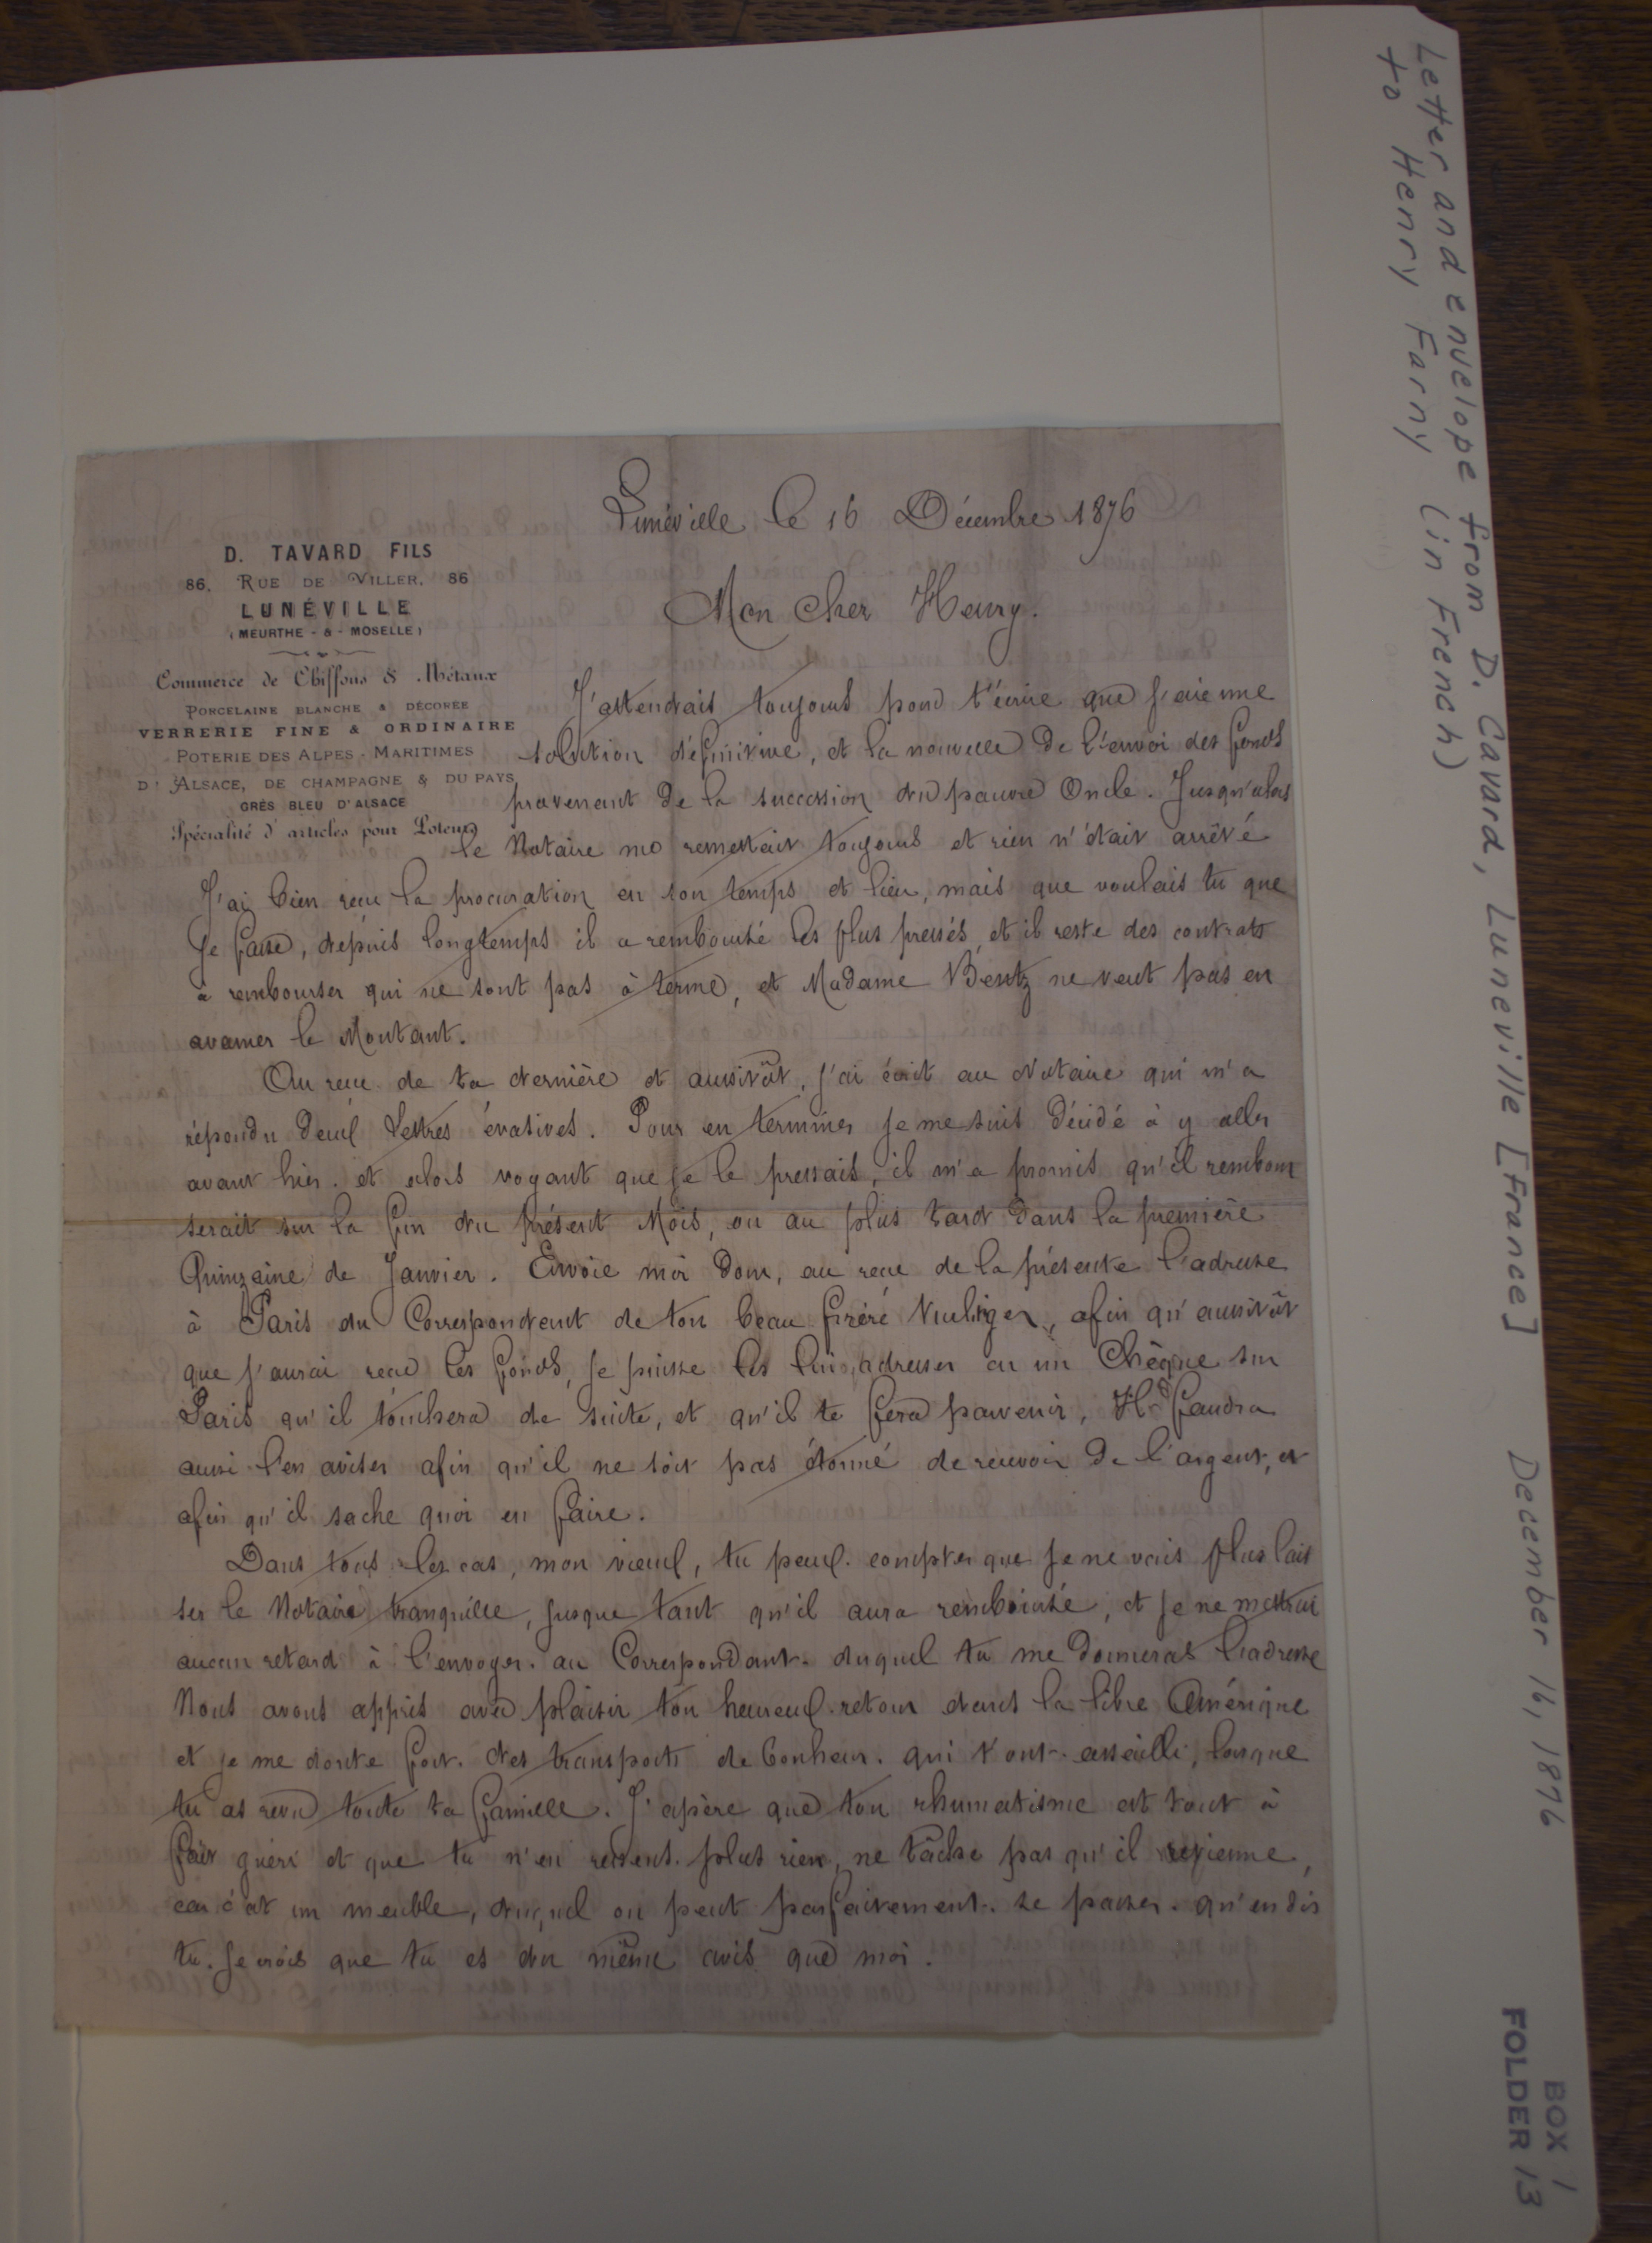 Letter and envelope from D. Cavard, Luneville [France] December 16, 1876
to Henry Farny (in French)
BOX 1
FOLDER 13
Lunéville le 16 Décembre 1876
D. TAVARD FILS
86, RUE DE VILLER, 86
LUNÉVILLE
(MEURTHE - & - MOSELLE)
Commerce de Chiffons & Métaux
PORCELAINE BLANCHE & DÉCORÉE
VERRERIE FINE & ORDINAIRE
POTERIE DES ALPES - MARITIMES
D'ALSACE, DE CHAMPAGNE & DU PAYS
GRÈS BLEU D'ALSACE
Spécialité d'articles pour Loteries
Mon Cher Henry.
J'attendais toujours pour t'écrire que j'aie une
solution définitive, et la nouvelle de l'envoi des fonds
provenant de la succession du pauvre Oncle. Jusqu'alors
le Notaire me remettait toujours et rien n'était arrêté
J'ai bien reçu la procuration en son temps et lieu, mais que voulais tu que
je fasse, depuis longtemps il a remboursé les plus pressés, et il reste des contrats
à rembourser qui ne sont pas à terme, et Madame Bentz ne veut pas en
avancer le Montant.
Au reçu de ta dernière et aussitôt, j'ai écrit au Notaire qui m'a
répondu deux Lettres évasives. Pour en terminer je me suis décidé à y aller
avant hier. et alors voyant que je le pressais, il m'a promis qu'il rembour
serait sur la fin du présent Mois, ou au plus tard dans la première
Quinzaine de Janvier. Envoie moi donc, au reçu de la présente l'adresse
à Paris du Correspondant de ton beau frère, afin qu'aussitôt
que j'aurai reçu les fonds, je puisse les lui adresser en un Chèque sur
Paris qu'il touchera de suite, et qu'il te fera parvenir, Il faudra
aussi l'en aviser afin qu'il ne soit pas étonné de recevoir de l'argent, et
afin qu'il sache quoi en faire.
Dans tous les cas, mon vieux, tu peux compter que je ne vais plus lais
ser le Notaire tranquille, jusque tant qu'il aura remboursé, et je ne mettrai
aucun retard à l'envoyer au Correspondant duquel tu me donneras l'adresse
Nous avons appris avec plaisir ton heureux retour dans la libre Amérique
et je me doute fort des transports de bonheur qui t'ont assailli, lorsque
tu as revu toute ta famille. J'espère que ton rhumatisme est tout à
fait guéri et que tu n'en ressens plus rien, ne tâche pas qu'il revienne,
car c'est un meuble, duquel on peut parfaitement se passer. qu'en dis
tu. Je crois que tu es du même avis que moi.